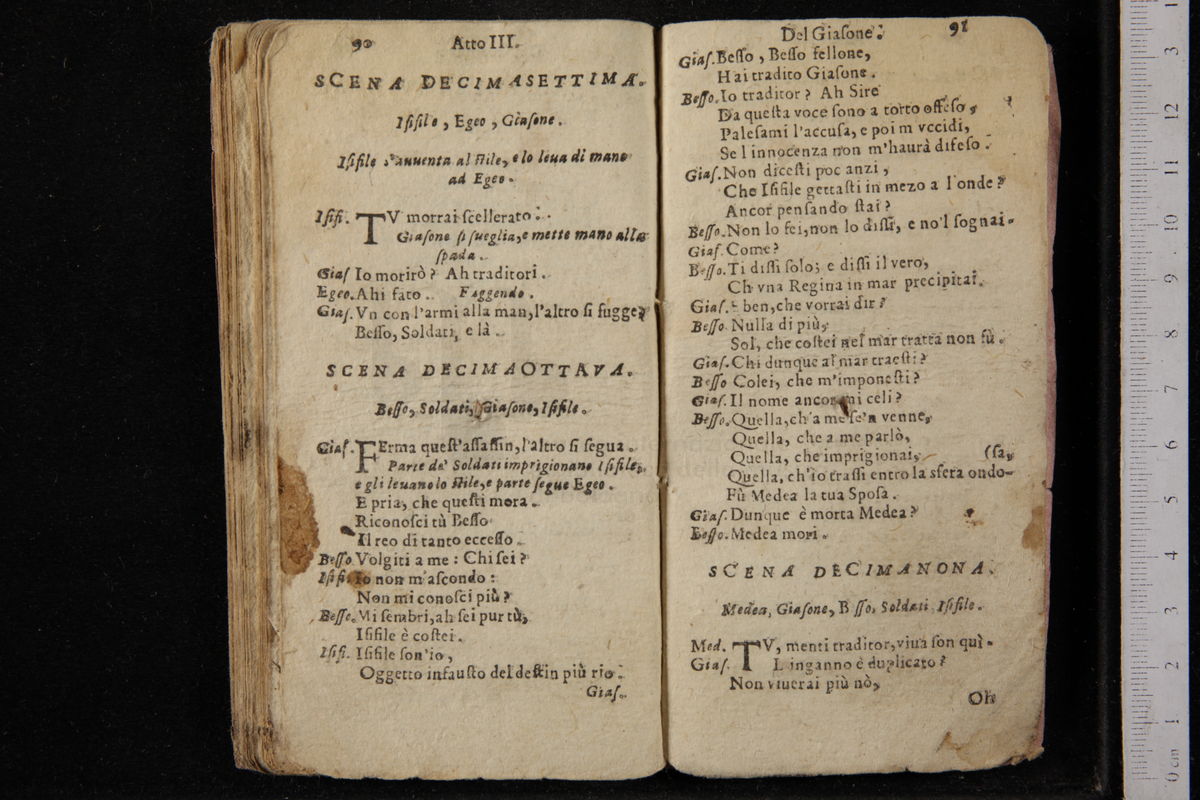 90 Atto III.
SCENA DECIMASETTIMA.
Isifile, Egeo, Giasone.
Isifile s'auuenta al stile, e lo leua di mano
ad Egeo.
Isifi. TV morrai scellerato.
Giasone si sueglia, e mette mano alla
spada.
Gias Io morirò? Ah traditori.
Egeo. Ahi fato. Fuggendo.
Gias. Vn con l'armi alla man, l'altro si fugge?
Besso, Soldati, e là.
SCENA DECIMAOTTAVA.
Besso, Soldati, Giasone, Isifile.
Gias. FErma quest'assassin, l'altro si segua.
Parte de' Soldati imprigionano Isifile,
e gli leuano lo stile, e parte segue Egeo.
E pria, che questi mora.
Riconosci tù Besso
Il reo di tanto eccesso.
Besso. Volgiti a me: Chi sei?
Isifi. Io non m'ascondo:
Non mi conosci più?
Besso. Mi sembri, ah sei pur tù,
Isifile è costei.
Isifi. Isifile son'io,
Oggetto infausto del destin più rio.
Gias.
Del Giasone. 91
Gias. Besso, Besso fellone,
Hai tradito Giasone.
Besso. Io traditor? Ah Sire
Da questa voce sono a torto offeso,
Palesami l'accusa, e poi m vccidi,
Se l innocenza non m'haurà difeso.
Gias. Non dicesti poc anzi,
Che Isifile gettasti in mezo a l'onde?
Ancor pensando stai?
Besso. Non lo fei, non lo dissi, e no'l sognai.
Gias. Come?
Besso. Ti dissi solo; e dissi il vero,
Ch vna Regina in mar precipitai.
Gias. E ben, che vorrai dir?
Besso. Nulla di più,
Sol, che costei nel mar tratta non fù.
Gias. Chi dunque al mar traesti?
Besso Colei, che m'imponesti?
Gias. Il nome ancor mi celi?
Besso. Quella, ch'a me se'n venne,
Quella, che a me parlò,
Quella, che imprigionai, (sa,
Quella, ch'io trassi entro la sfera ondo-
Fù Medea la tua Sposa.
Gias. Dunque è morta Medea?
Besso. Medea morì.
SCENA DECIMANONA.
Medea, Giasone, B sso, Soldati, Isifile.
Med. TV, menti traditor, viua son quì.
Gias. L inganno è duplicato?
Non viuerai più nò,
Oh